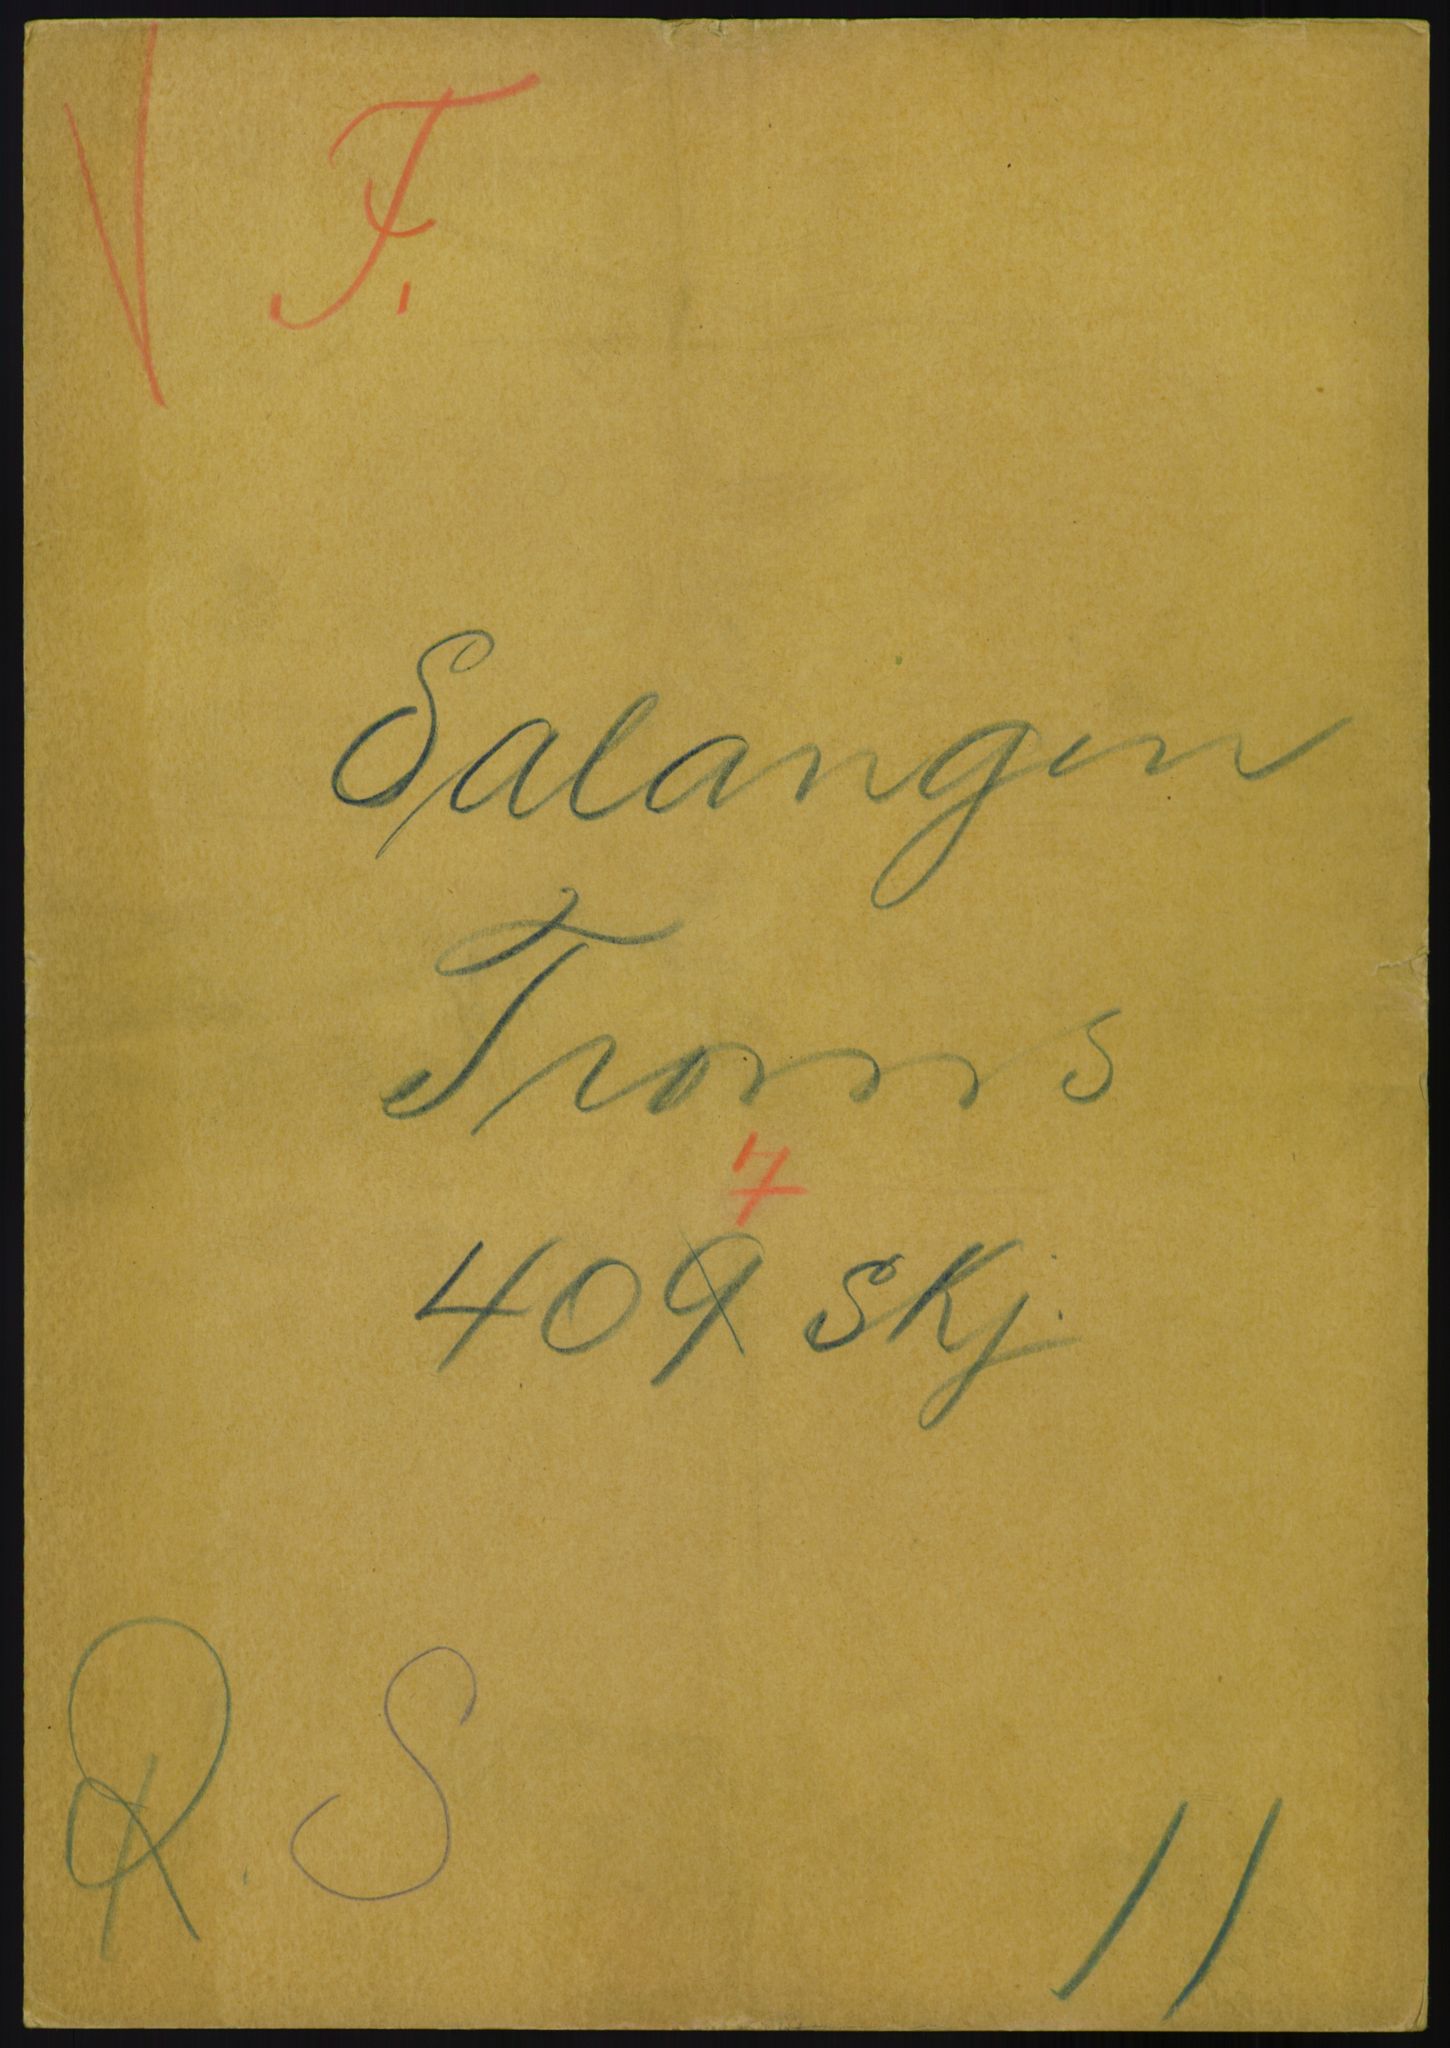 F.
Salangen
Troms
7
409 Skj.
R. S
11